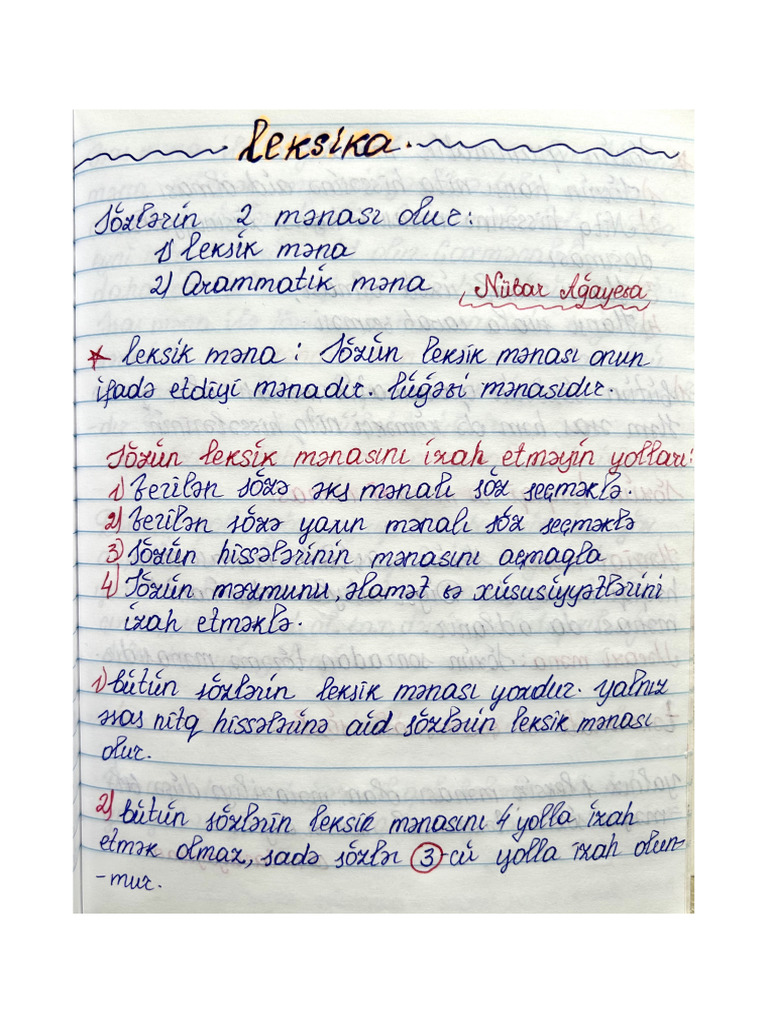 Leksika.
Sözlərin 2 mənası olur:
1) Leksik məna
2) Qrammatik məna
Nübar Ağayeva
* Leksik məna: Sözün leksik mənası onun
ifadə etdiyi mənadır. Lüğəvi mənasıdır.
Sözün leksik mənasını izah etməyin yolları:
1) Verilən sözə əks mənalı söz seçməklə.
2) Verilən sözə yaxın mənalı söz seçməklə
3) Sözün hissələrinin mənasını açmaqla
4) Sözün məzmunu, əlamət və xüsusiyyətlərini
izah etməklə.
1) Bütün sözlərin leksik mənası yoxdur. Yalnız
əsas nitq hissələrinə aid sözlərin leksik mənası
olur.
2) Bütün sözlərin leksik mənasını 4 yolla izah
etmək olmaz, sadə sözlər 3-cü yolla izah olun-
-mur.